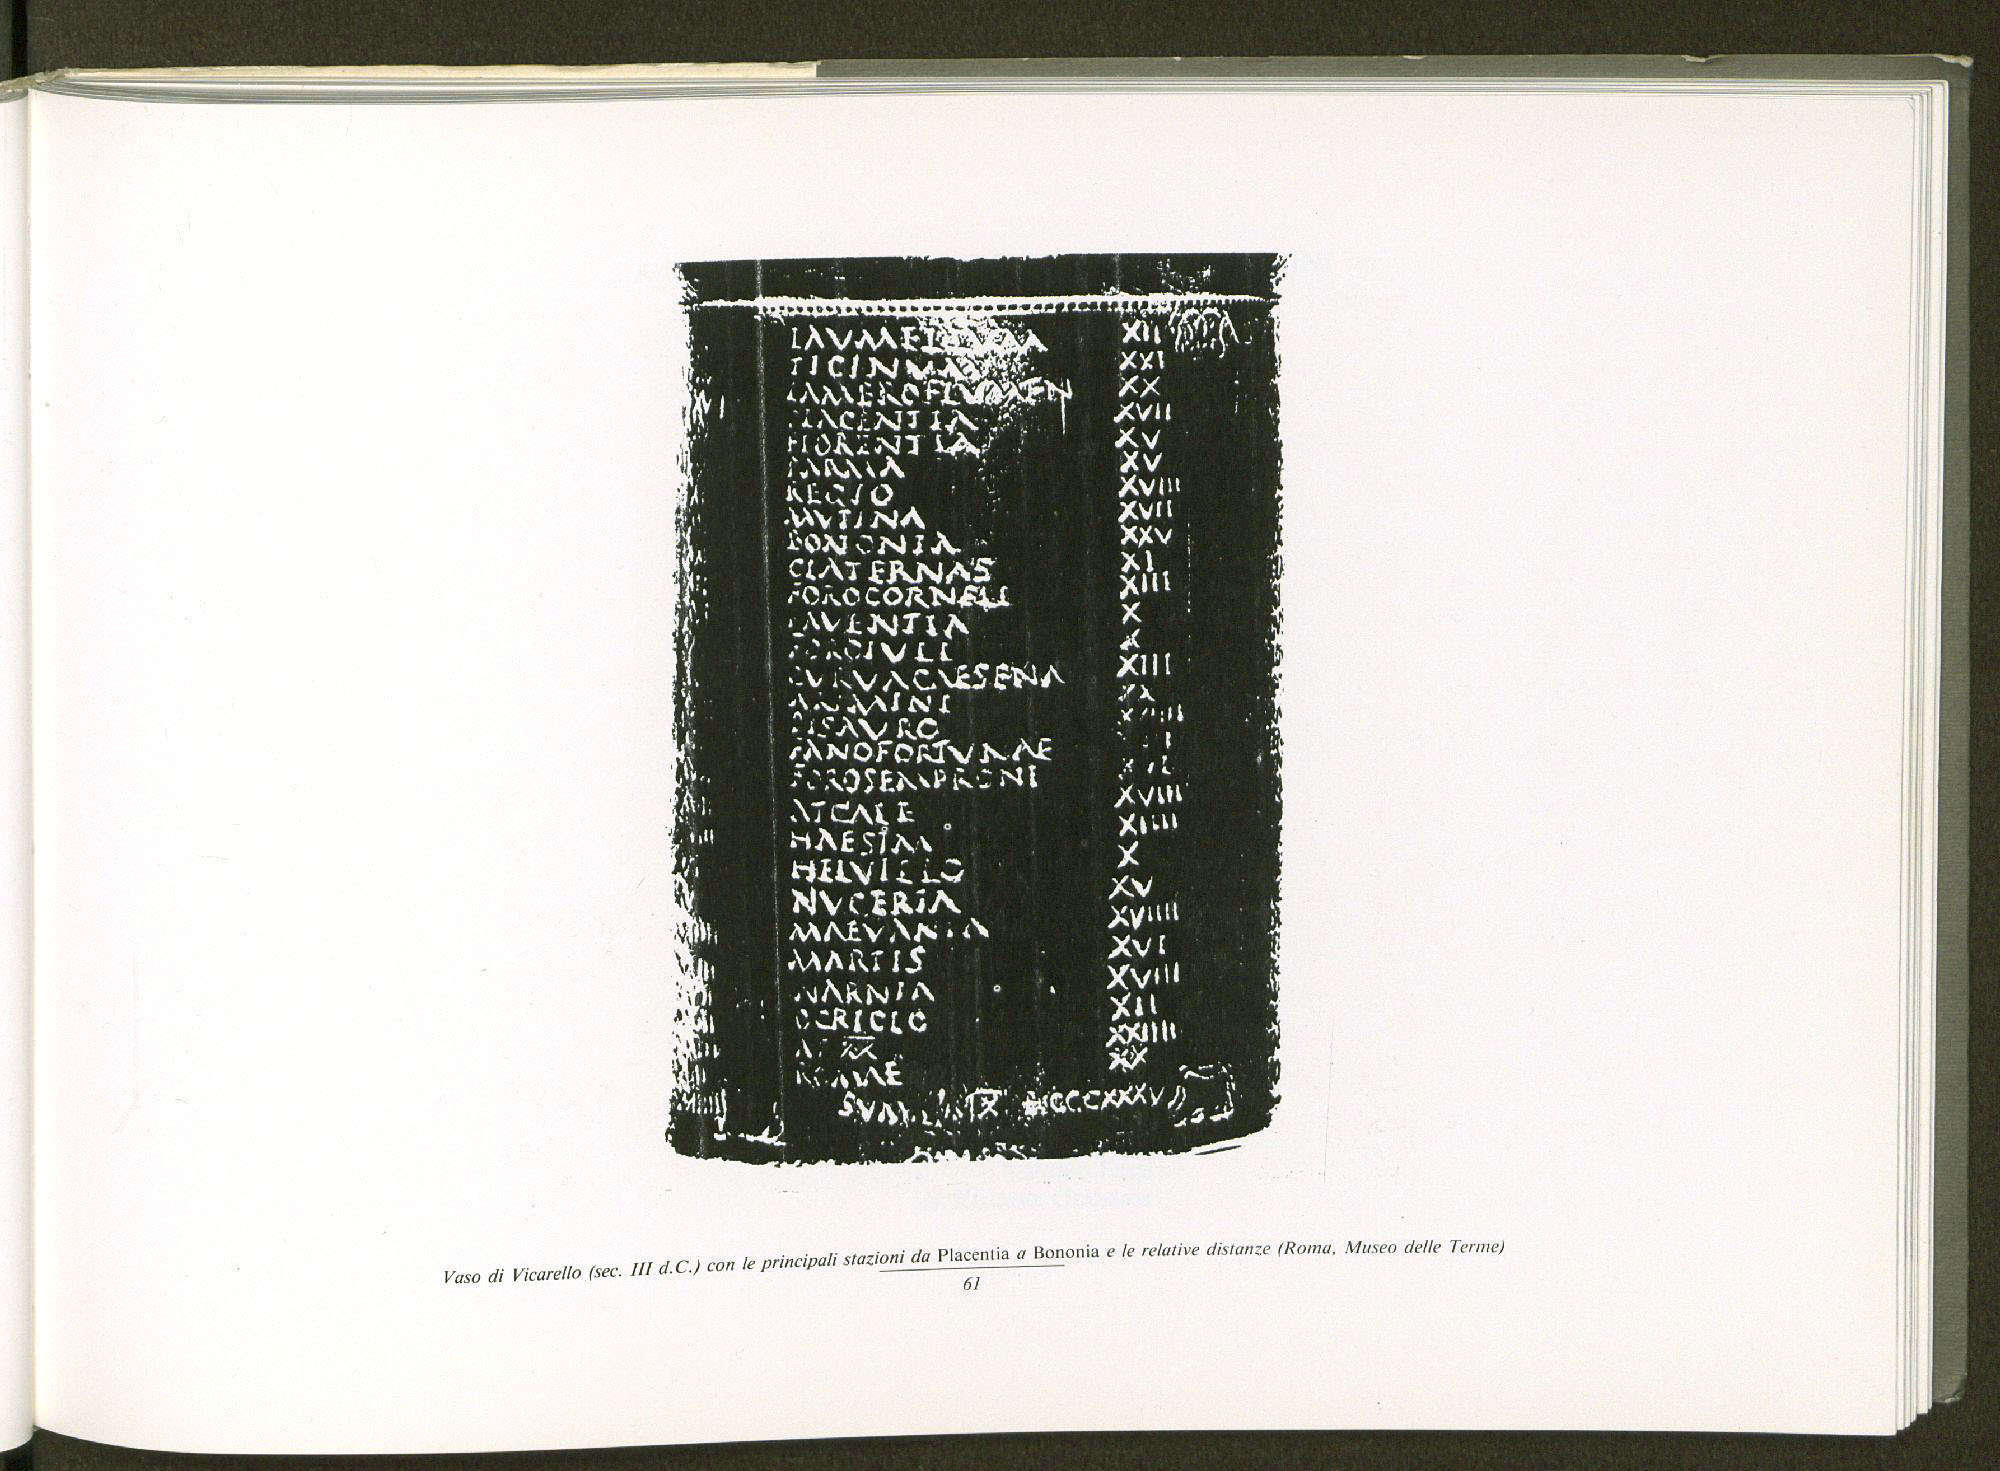 LAUMELLUM XII
TICINUM XXI
LAMBROFLUMEN XX
PLACENTIA XVII
FLORENTIA XV
PARMA XV
REGIO XVIII
MUTINA XVII
BONONIA XXV
CLATERNAS XI
FOROCORNELI XIII
FAVENTIA X
FOROIULI X
CURVACAESENA XIII
ARIMINI XX
PISAURO
FANOFORTUNAE
FOROSEMPRONI
ATCALE XVIII
HAESIM XIIII
HELVILLO X
NUCERIA XV
MAEVANIA XVIIII
MARTIS XVI
NARNIA XVIII
OCRICLO XII
AT XX XXIIII
ROMAE XX
Vaso di Vicarello (sec. III d.C.) con le principali stazioni da Placentia a Bononia e le relative distanze (Roma, Museo delle Terme)
61